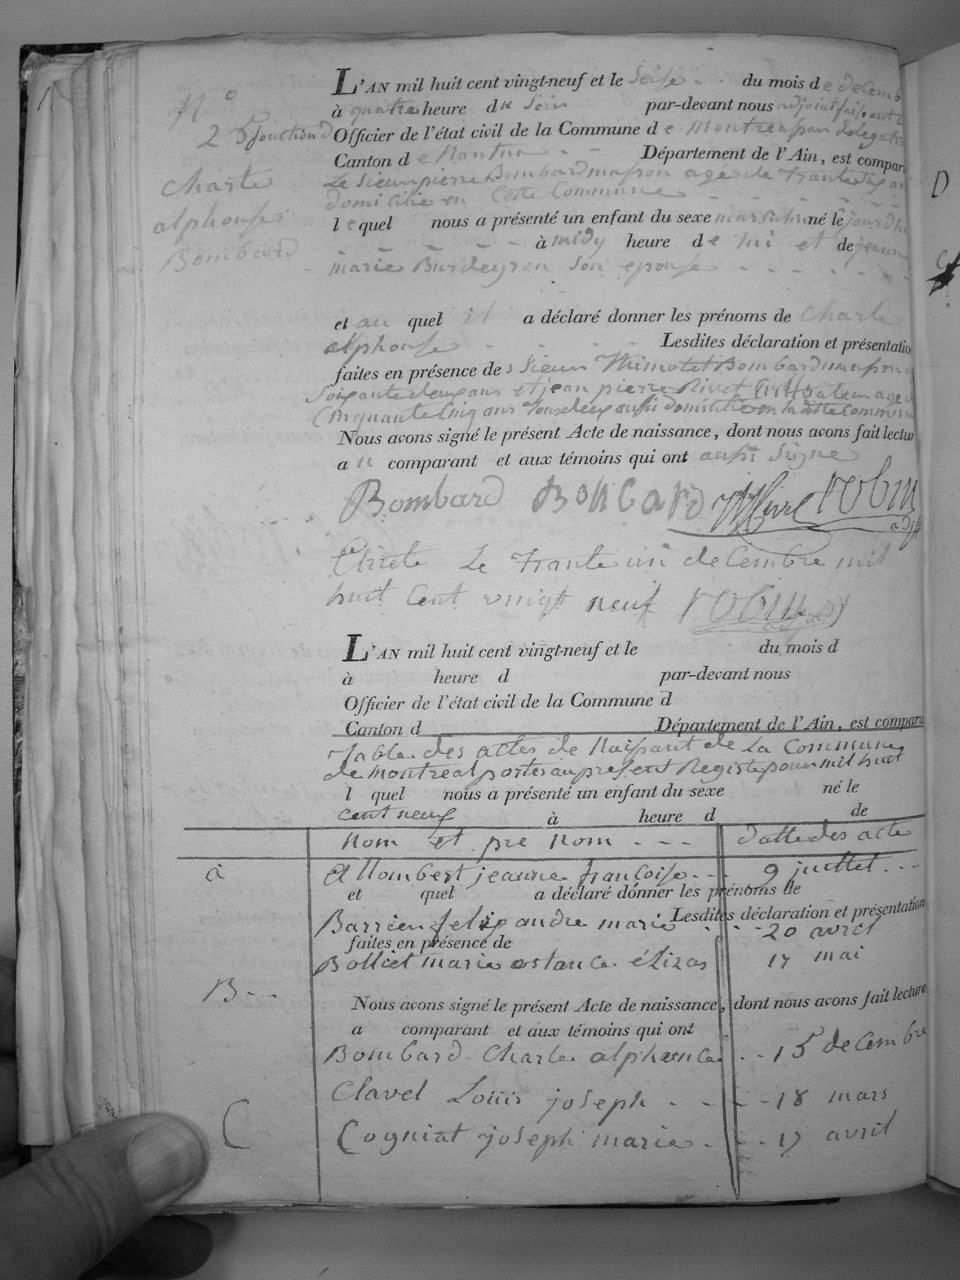 N°
25
Charle
alphonse
Bombard
L'AN mil huit cent vingt-neuf et le seise du mois de decemb
à quatre heure du soir par-devant nous adjoint faisant
Officier de l'état civil de la Commune de Montreal par delegatio
Canton de Nantua Département de l'Ain, est compar
Le sieur pierre Bombard masson age de trante six an
domicilie en cette Commune
lequel nous a présenté un enfant du sexe masculin né le jourdhu
à midy heure de lui et de jeanne
marie Burdeyron son epouse
et au quel il a déclaré donner les prénoms de Charle
alphonse Lesdites déclaration et présentatio
faites en présence des sieurs Thimotet Bombard masson
soixante deux ans et jean pierre Rivet age
Cinquante Cinq ans tous deux aussi domicilié en la ditte Commune
Nous avons signé le présent Acte de naissance, dont nous avons fait lectur
au comparant et aux témoins qui ont aussi signe
Bombard Bonbard robin
Le trante un decembre mil
huit cent vingt neuf robin
L'AN mil huit cent vingt-neuf et le du mois d
à heure d par-devant nous
Officier de l'état civil de la Commune d
Canton d Département de l'Ain, est compara
Table des actes de Naissant de La Commune
de Montreal portés au present Registre pour mil huit
l quel nous a présenté un enfant du sexe né le
cent neuf à heure d de
Nom et pre nom datte des acte
a Allombert jeanne françoise 9 juillet
et quel a déclaré donner les prénoms de
Lesdites déclaration et présentation
Barrien felix andre marie 20 avril
faites en présence de
Bolliet marie Constance élizas 17 mai
B
Nous avons signé le présent Acte de naissance, dont nous avons fait lecture
a comparant et aux témoins qui ont
Bombard Charle alphonce 15 decembre
Clavel Louis joseph 18 mars
C Cogniat joseph marie 17 avril